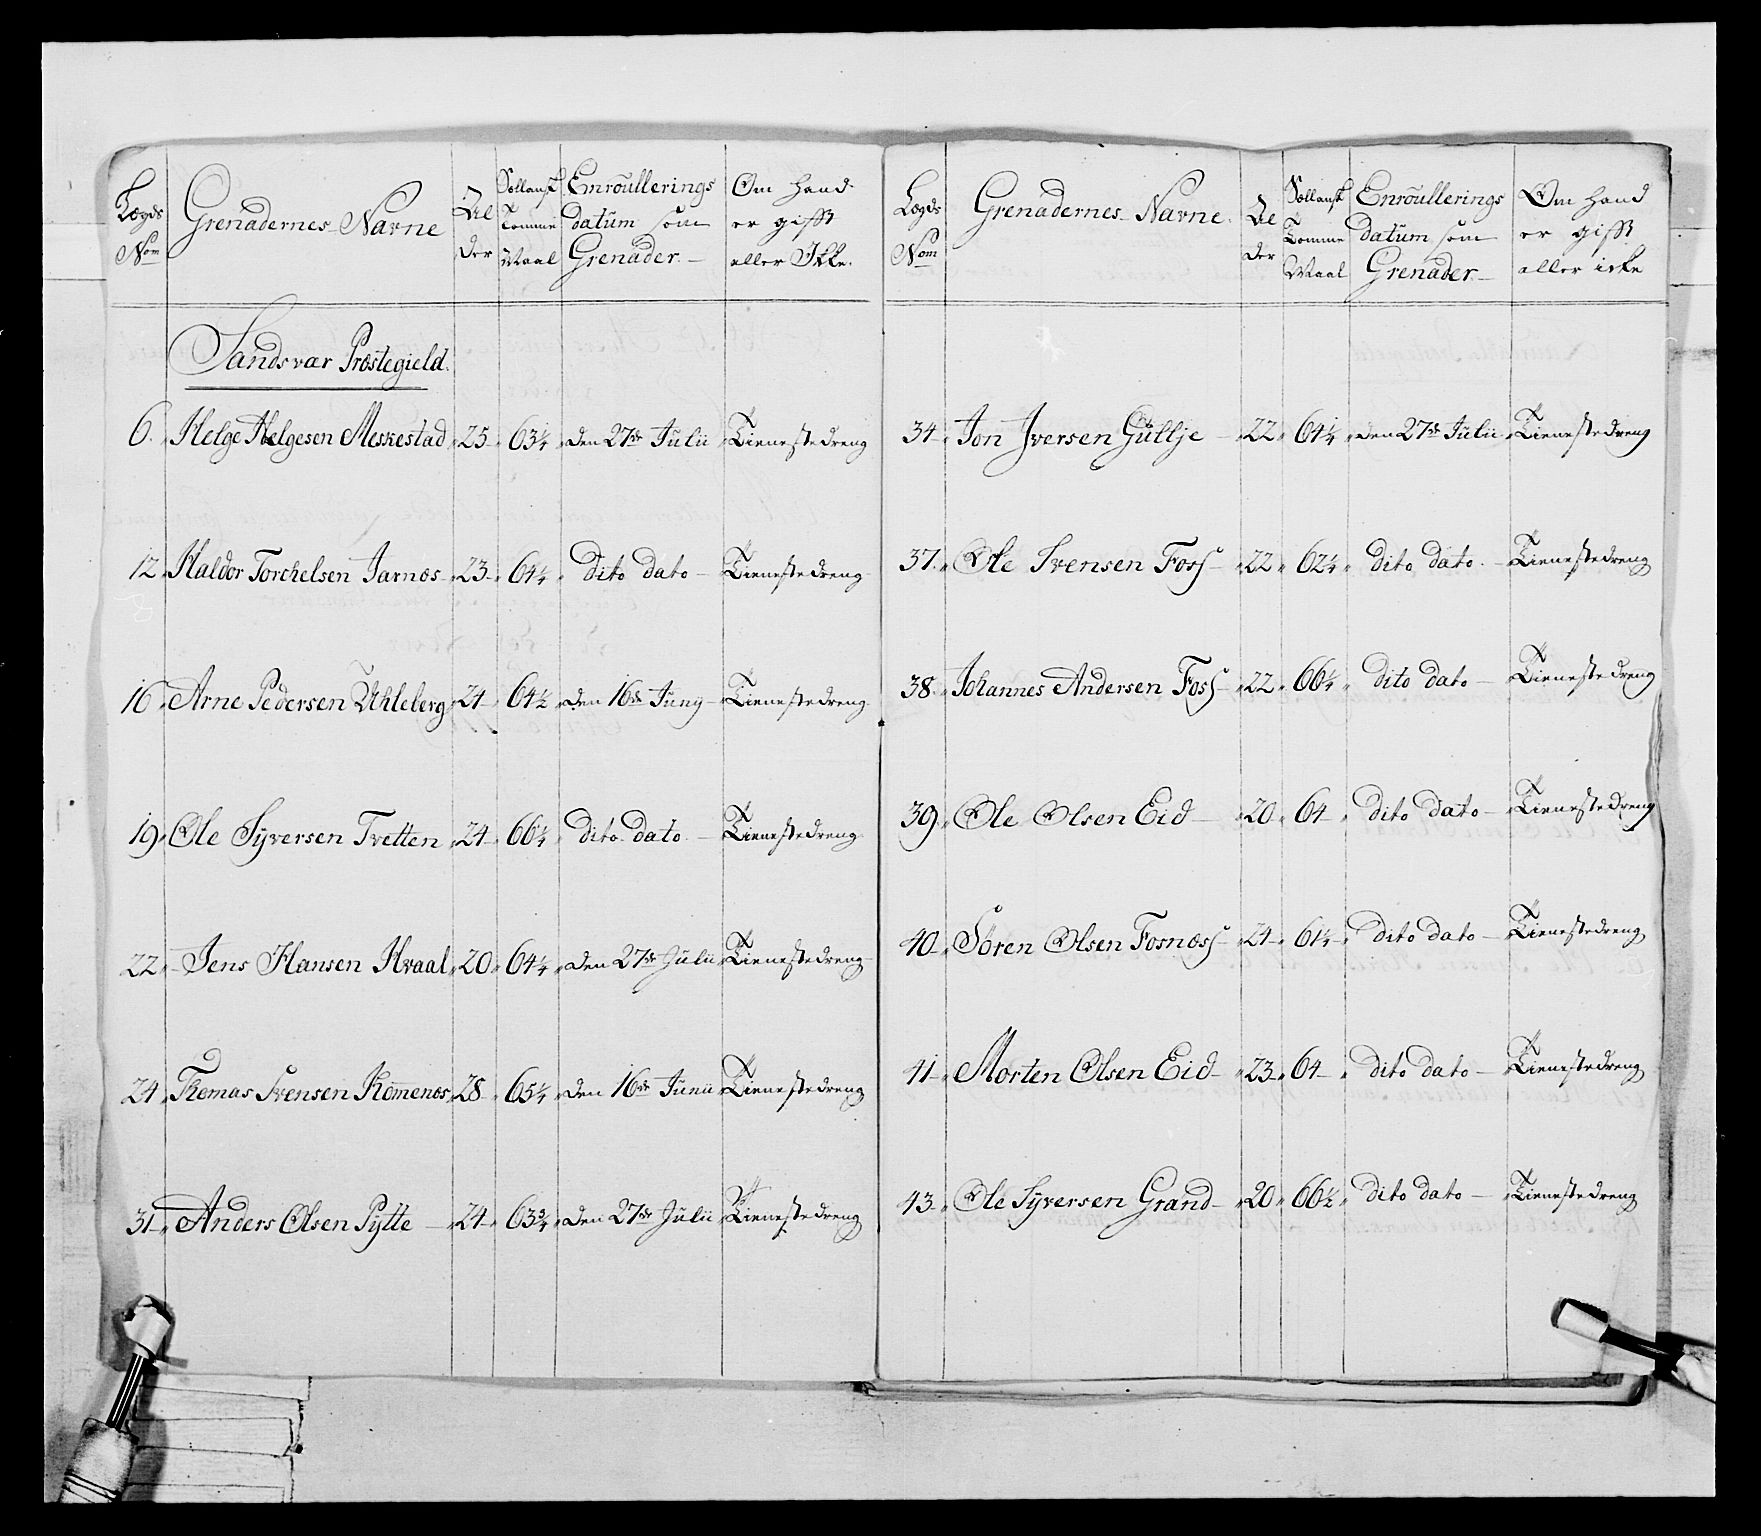 Lægds Nom | Grenadernes Navne | Al der | Sellansk Tomme Maal | Enroullerings datum som Grenader | Om Hand er gifft aller Ikke.
Sandsvær Præstegield.
6. Helge Helgesen Meskestad 25 63¼ den 27de Julii Tienestedreng
12 Haldor Torchelsen Jarnæs 23 64¼ dito dato Tienestedreng
16 Arne Pedersen Uhleberg 24 64½ den 16de Juny Tienestedreng
19 Ole Syversen Tvetten 24 66¼ dito dato Tienestedreng
22 Jens Hansen Hvaal 20 64¼ den 27de Julii Tienestedreng
24 Thomas Svensen Komenæs 28 65¼ den 16de Junii Tienestedreng
31 Anders Olsen Pytte 24 63¾ den 27de Julii Tienestedreng
Lægds Nom | Grenadernes Navne. | Al der | Sellansk Tomme Maal | Enroullerings datum som Grenader | Om Hand er gifft aller icke
34 Jon Iversen Gullje 22 64¼ den 27de Julii Tienestedreng
37. Ole Svensen Foss 22 62¼ dito dato. Tienestedreng
38 Johannes Andersen Foss 22 66¼ dito dato Tienestedreng
39 Ole Olsen Eid 20 64 dito dato Tienestedreng
40 Sören Olsen Fosnæss 24 61¼ dito dato Tienestedreng
41 Morten Olsen Eid 23 64 dito dato Tienestedreng
43 Ole Syversen Grand 20 66½ dito dato Tienestedreng